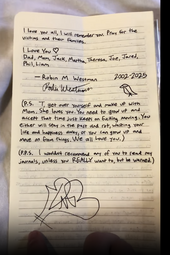 I love you all, I will remember you. Pray for the
victims and their families.
I Love You ♡
Dad, Mom, Jack, Martha, Theresa, Joe, Jared,
Phil, Liam
- Robin M. Westman 2002-2025
Robin Westman
(P.S. I get over yourself and make up with
Mom. She loves you. You need to grow up and
accept that time just keeps on fucking moving. You
either will stay in the past and rot, wasting your
life and happiness away, or you can grow up and
move on from things. We all love you.)
(P.P.S. I wouldn't recommend any of you to read my
journals, unless you REALLY want to, but be warned.)